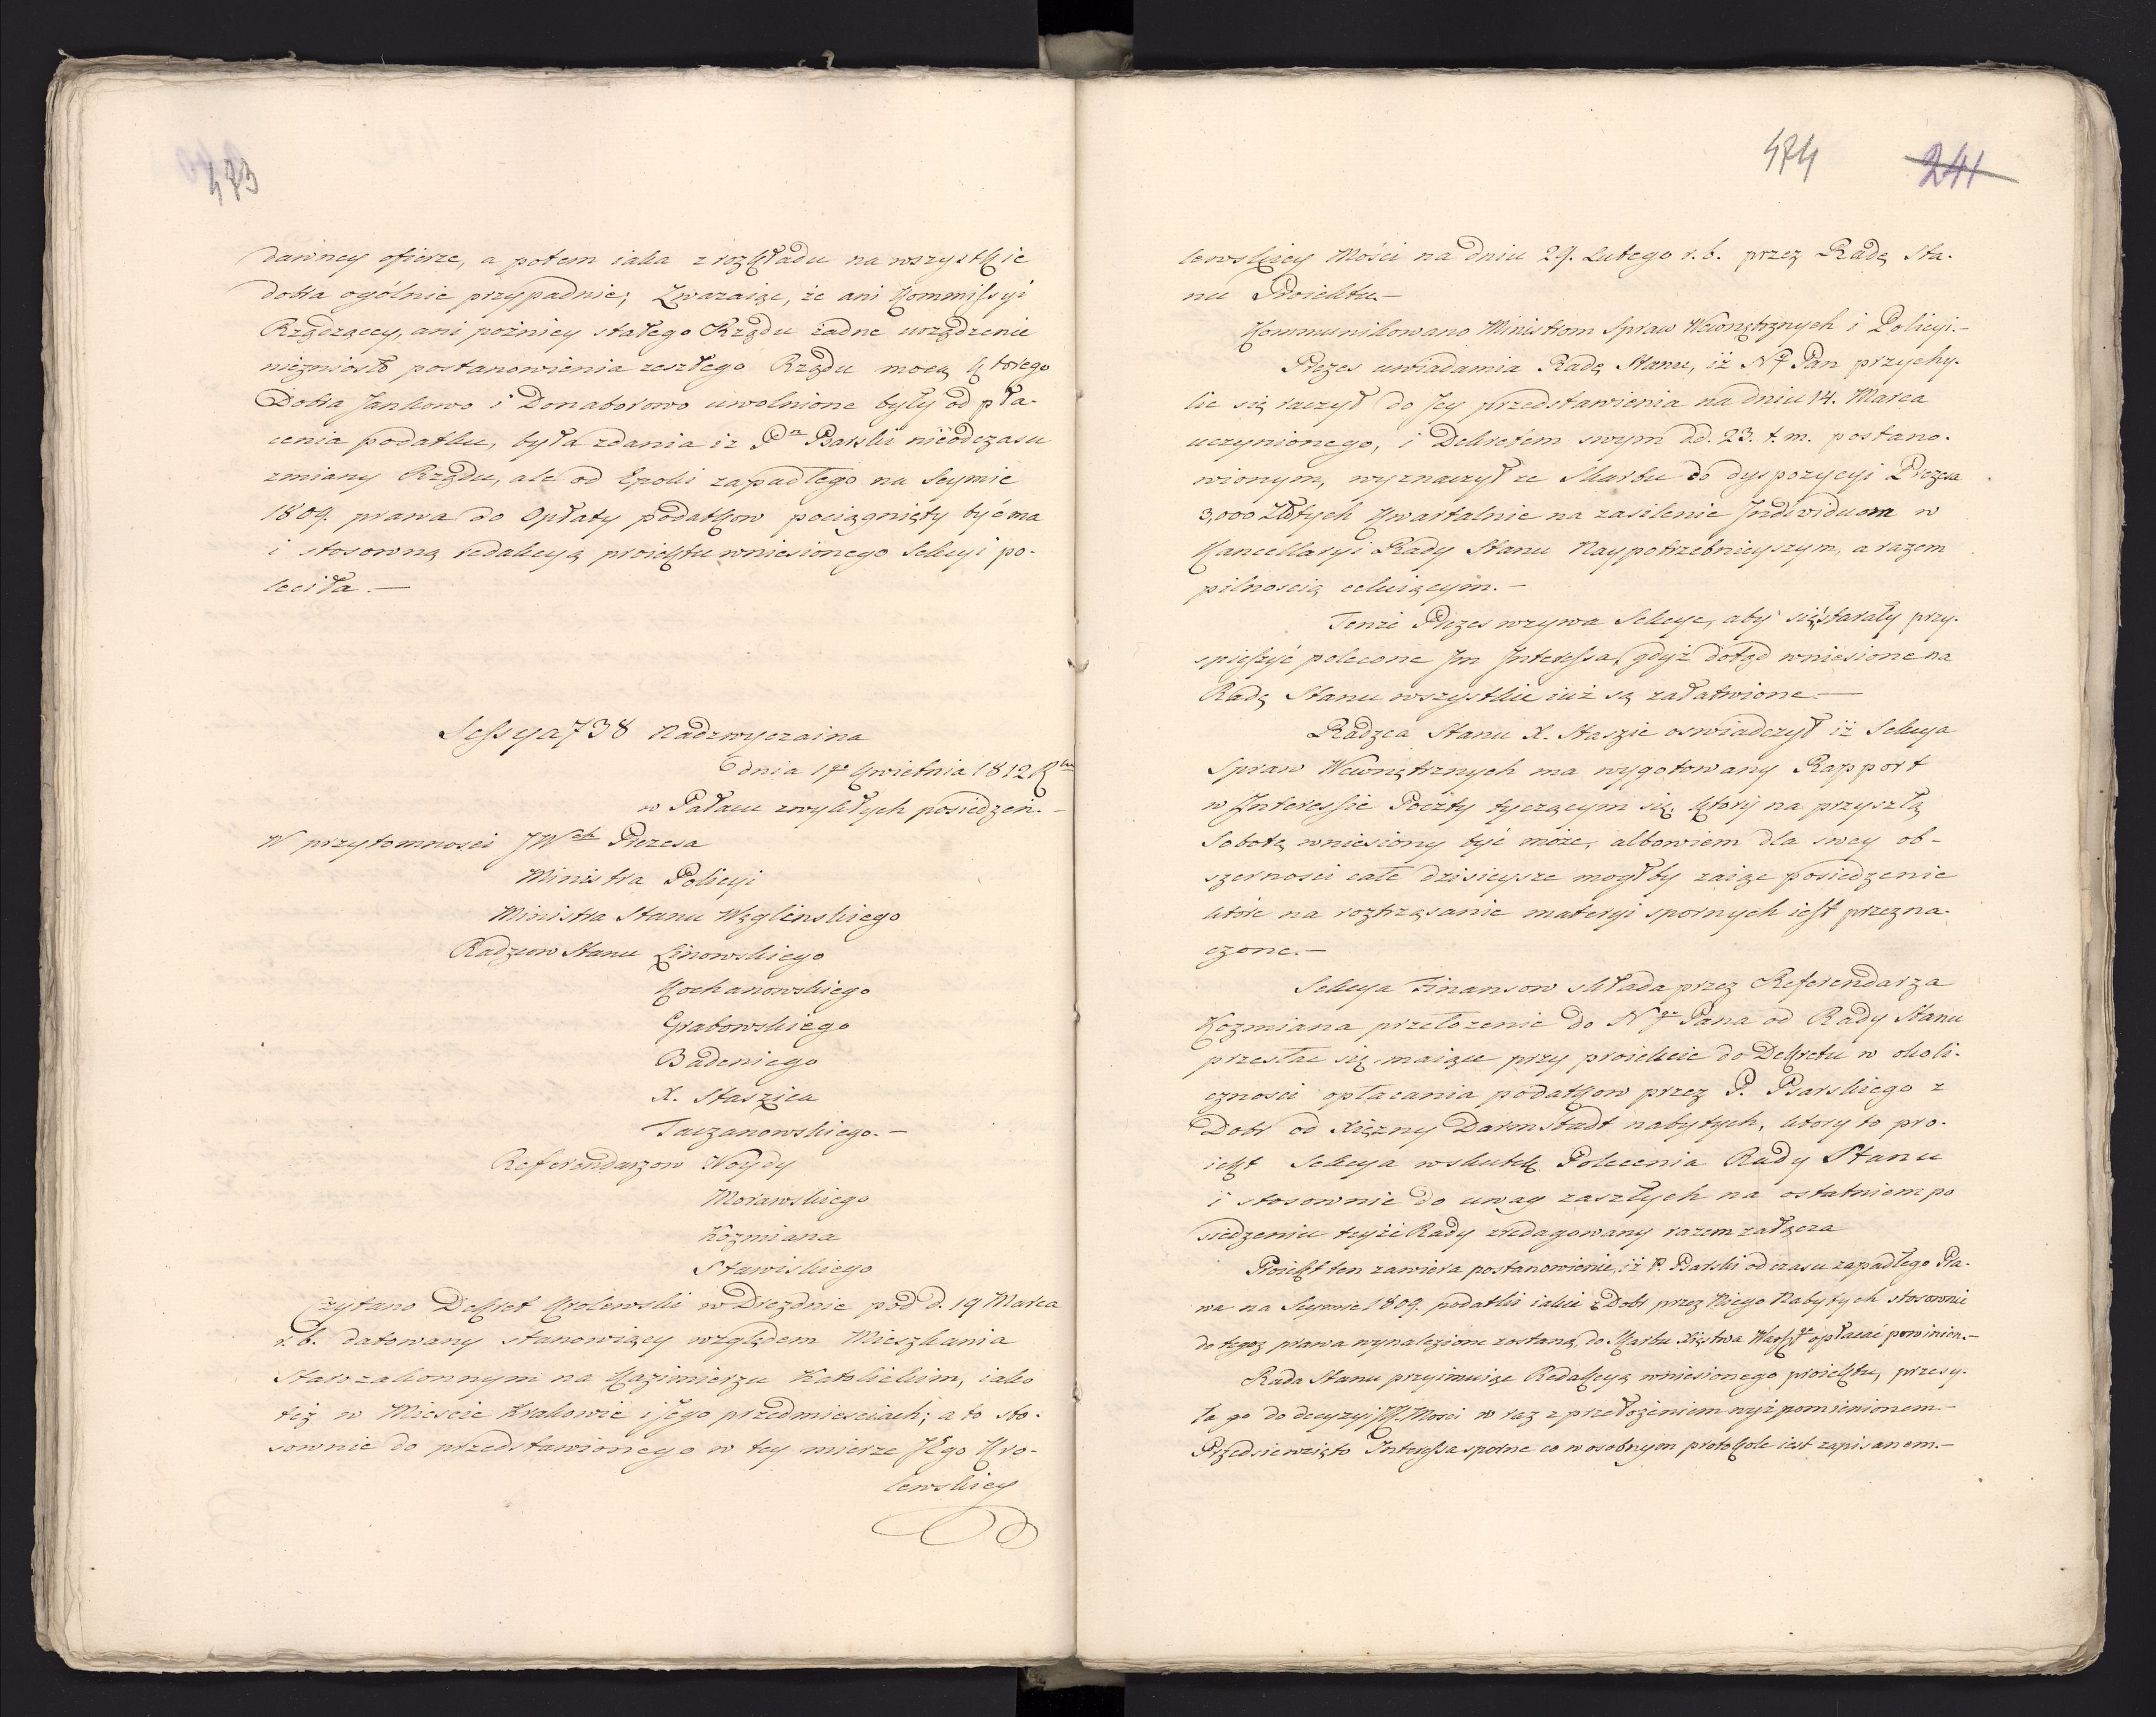 473
dawney ofierze, a potem iaka z rozkładu na wszystkie
dobra ogólnie przypadnie; Zwazaiąc, że ani Kommissyi
Rządzącey, ani pożniey stałego Rządu żadne urządzenie
niezniosło postanowienia zeszłego Rządu mocą którego
Dobra Jankowo i Donaborowo uwolnione były od pła-
cenia podatku, była zdania iz Pn Psarski nieodczasu
zmiany Rządu, ale od Epoki zapadłego na Seymie
1809. prawa do Opłaty podatkow pociągnięty być ma
i stosowną redakcyą proiektu wniesionego Sekcyi po-
leciła. —
Sessya 738 Nadzwyczaina
dnia 1go Kwietnia 1812 Rku
w Pałacu zwykłych posiedzeń. —
W przytomnosci JWch Prezesa
Ministra Policyi
Ministra Stanu Węglinskiego
Radzcow Stanu Linowskiego
Kochanowskiego
Grabowskiego
Badeniego
X. Staszica
Taczanowskiego. —
Referendarzow Woydy
Morawskiego
Kozmiana
Stawiskiego
Czytano Dekret Krolewski w Dreznie pod d. 19 Marca
r. b. datowany stanowiący względem Mieszkania
Starozakonnym na Kazimierzu Katolickim, iako
też w Miescie Krakowie i Jego przedmiesciach; a to sto-
sownie do przedstawionego w tey mierze JEgo Kro-
lewskiey
474 241
lewskiey Mości na dniu 29. Lutego r. b. przez Radę Sta-
nu Proiektu. —
Kommunikowano Ministrom Spraw Wewnętrznych i Policyi. —
Prezes uwiadamia Radę Stanu, iż Ny Pan przychy-
lic się raczył do Jey przedstawienia na dniu 14. Marca
uczynionego, i Dekretem swym d.d. 23. t. m. postano-
wionym, wyznaczył ze Skarbu do dyspozycyi Prezesa
3,000 Złłtych Kwartalnie na zasilenie Individuom w
Kancellaryi Rady Stanu Naypotrzebnieyszym, a razem
pilnoscią celuiącym. —
Tenże Prezes wzywa Sekcye, aby się starały przy-
spieszyć polecone Jm Interessa, gdyż dotąd wniesione na
Radę Stanu wszystkie iuż są załatwione. —
Radzca Stanu X. Staszic oswiadczył iż Sekcya
Spraw Wewnętrznych ma wygotowany Rapport
w Interessie Poczty tyczącym się, który na przyszłą
Sobotę wniesiony być może, albowiem dla swey ob-
szernosci całe dzisieysze mogłby zaiąc posiedzenie
które na roztrząsanie materyi spornych iest przezna-
czone. —
Sekcya Finansow składa przez Referendarza
Kozmiana przełozenie do Ngo Pana od Rady Stanu
przesłac się maiące przy proiekcie do Dekretu w okoli-
cznosci opłacania podatkow przez P. Psarskiego z
Dobr od Xiężny Darmstadt nabytych, ktory to pro-
iekt Sekcya wskutek Polecenia Rady Stanu
i stosownie do uwag zaszłych na ostatniem po
siedzeniu teyże Rady zredagowany razem załącza
Proiekt ten zawiera postanowienie, iż P. Psarski od czasu zapadłego Pra-
wa na Seymie 1809. podatki iakie z Dobr przez Niego Nabytych stosownie
do tegoz prawa wynalezione zostaną, do Skarbu Xięstwa Warszgo opłacać powinien. —
Rada Stanu przyimuiąc Redakcyą wniesionego proiektu, przesy-
ła go do decyzyi JK. Mosci w raz z przełożeniem wyż pomienionem —
Przedsiewzięto Interessa sporne co w osobnym protokole iest zapisanem. —